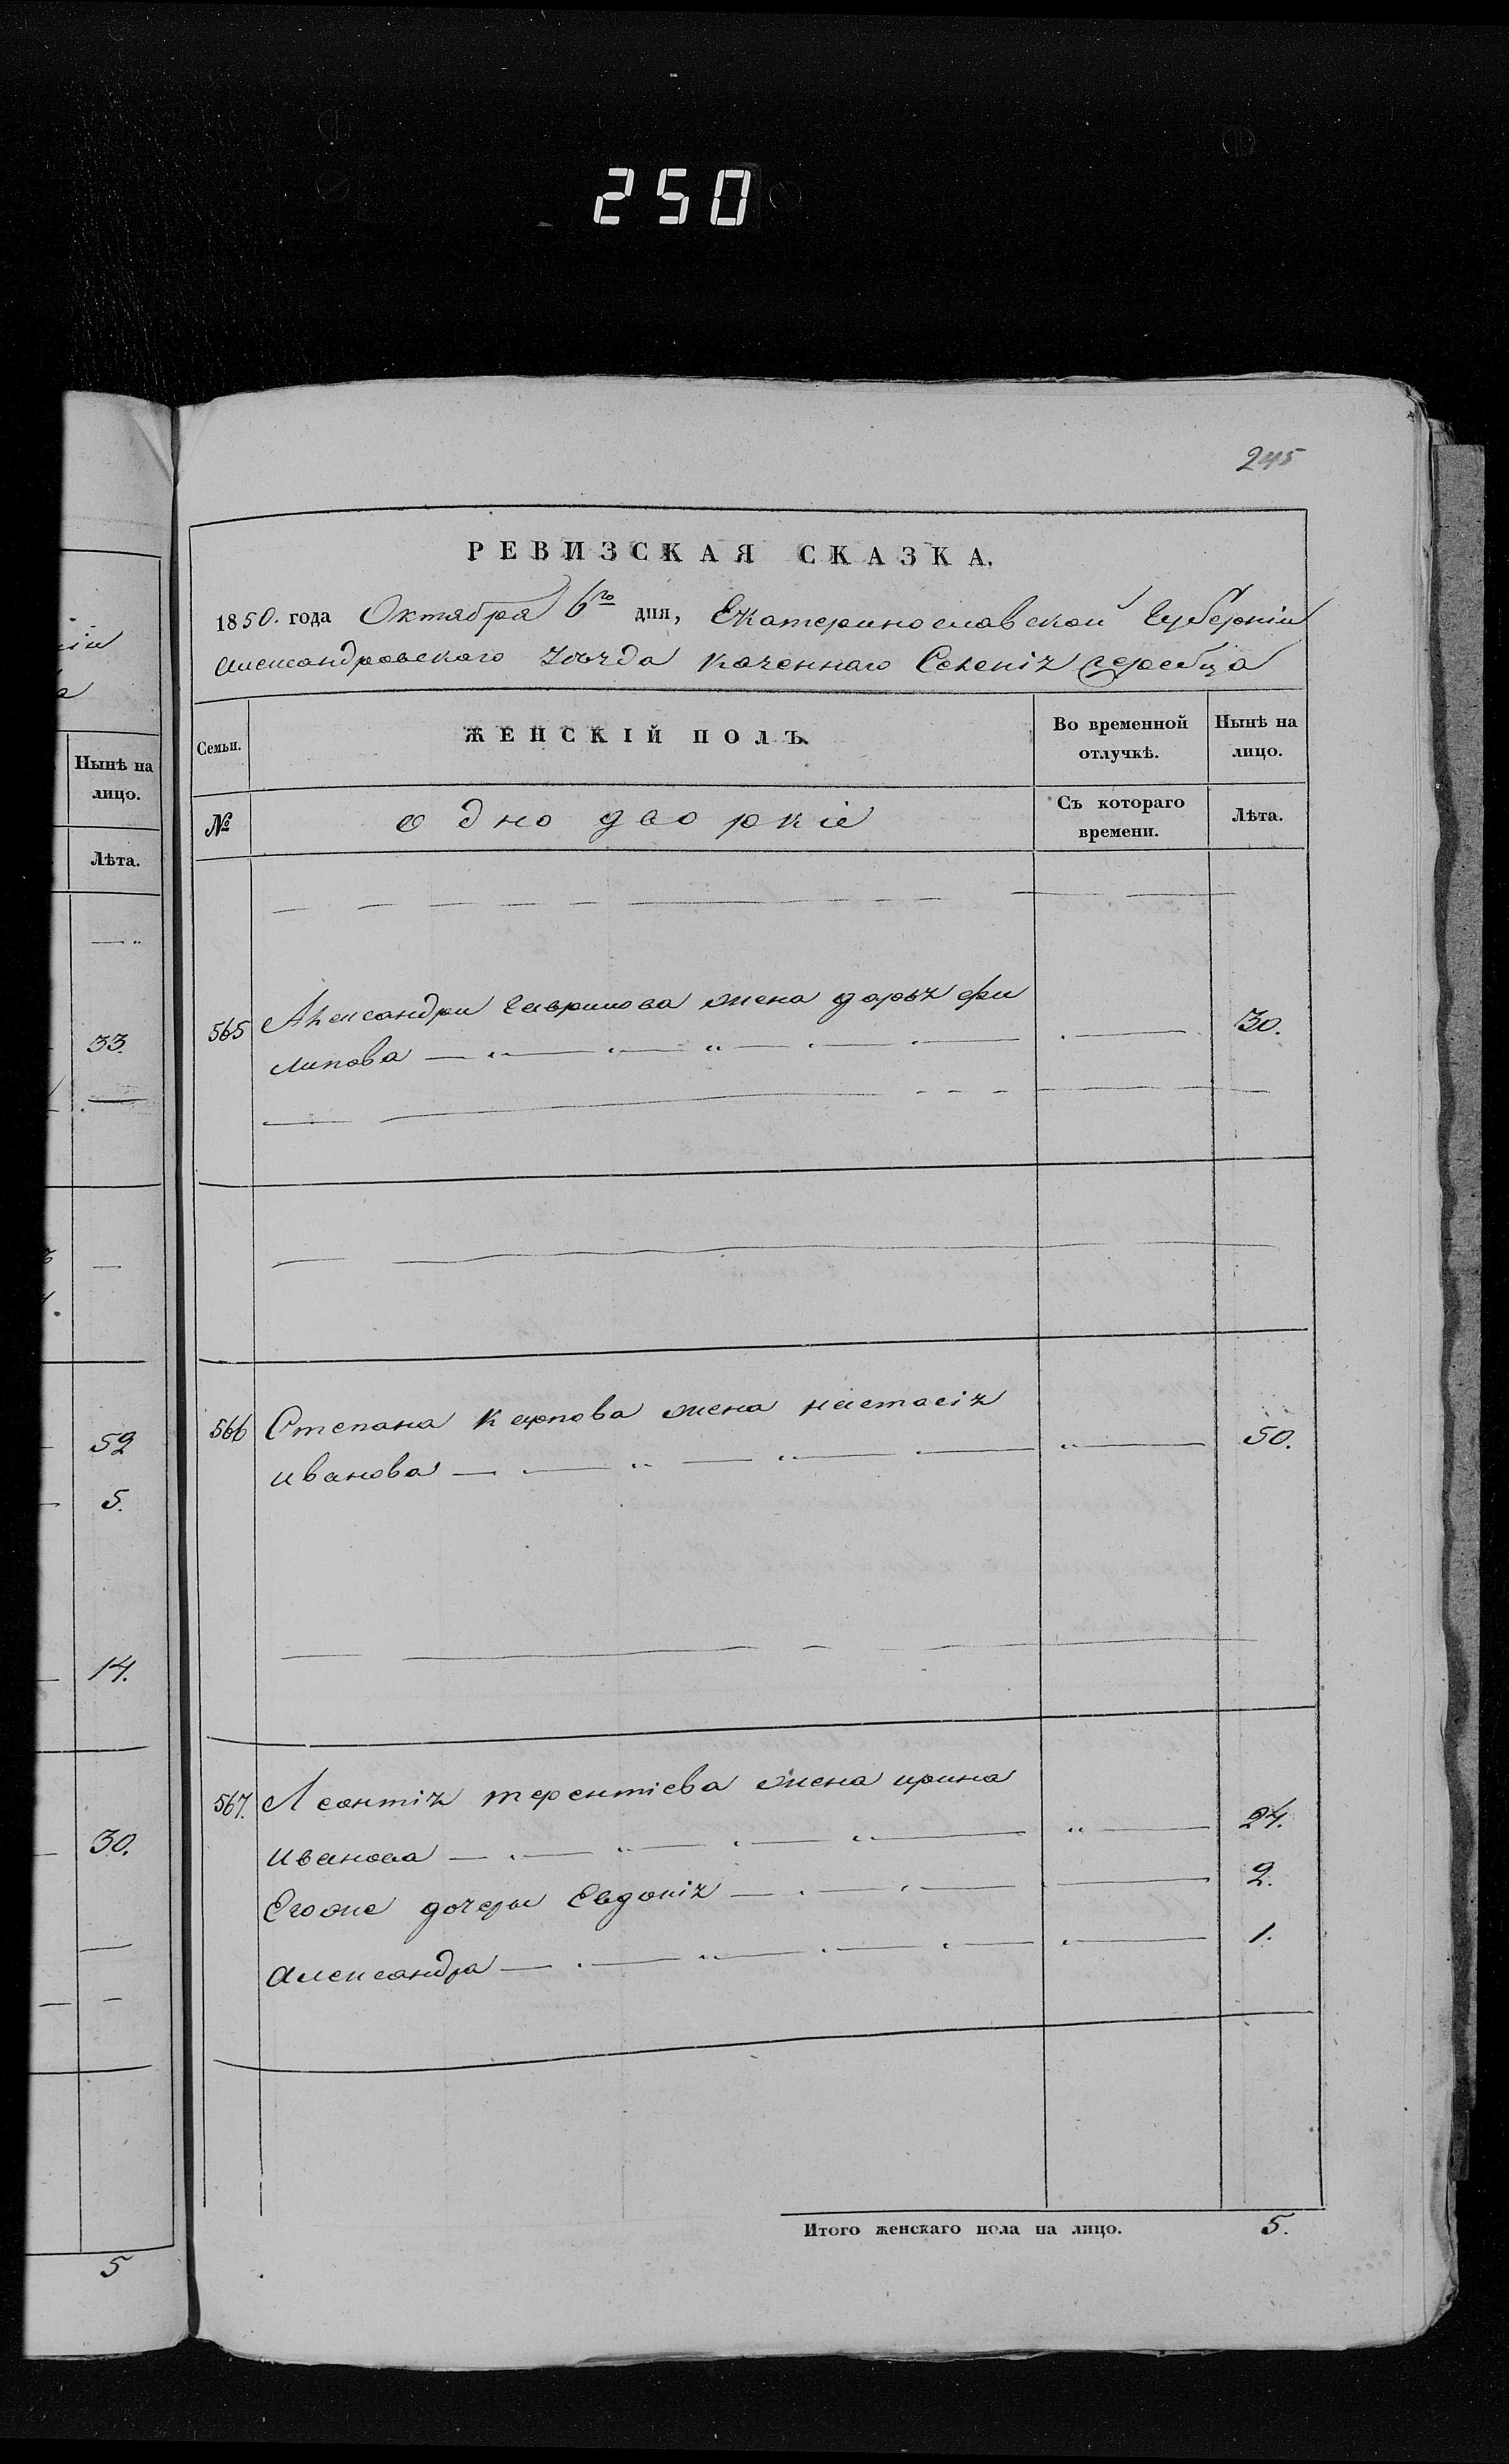 250
245
РЕВИЗСКАЯ СКАЗКА.
1850. года Октября 6го дня, Екатеринославской Губерніи
Александровского уѣзда казеннаго Селенія Жеребца
Семьи.
ЖЕНСКІЙ ПОЛЪ.
Во временной отлучкѣ.
Нынѣ на лицо.
№
однодворкіе
Съ котораго времени.
Лѣта.
565 Александры Гаврилова жена дарья фи
липова 30.
566 Степана Карпова жена настасія
иванова 50.
567. Леонтія терентіева жена ирина
иванова 24.
Егоже дочеры Евдокія 2.
александра 1.
Итого женскаго пола на лицо. 5.
Нынѣ на
лицо.
Лѣта.
33.
52
5.
14.
30.
5